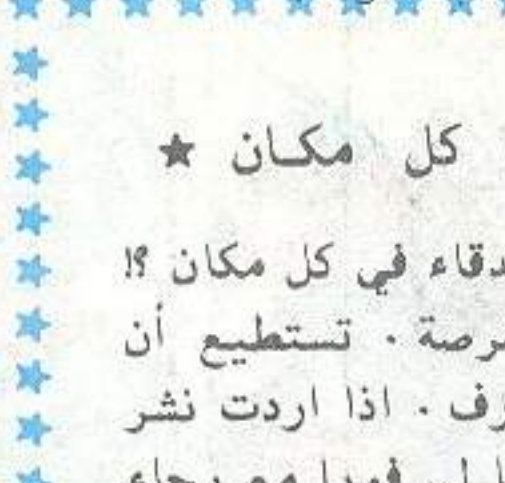 كل مكان ★
دقاء في كل مكان ؟!
رصة . تستطيع أن
رف . اذا اردت نشر
فورا مع رجاء